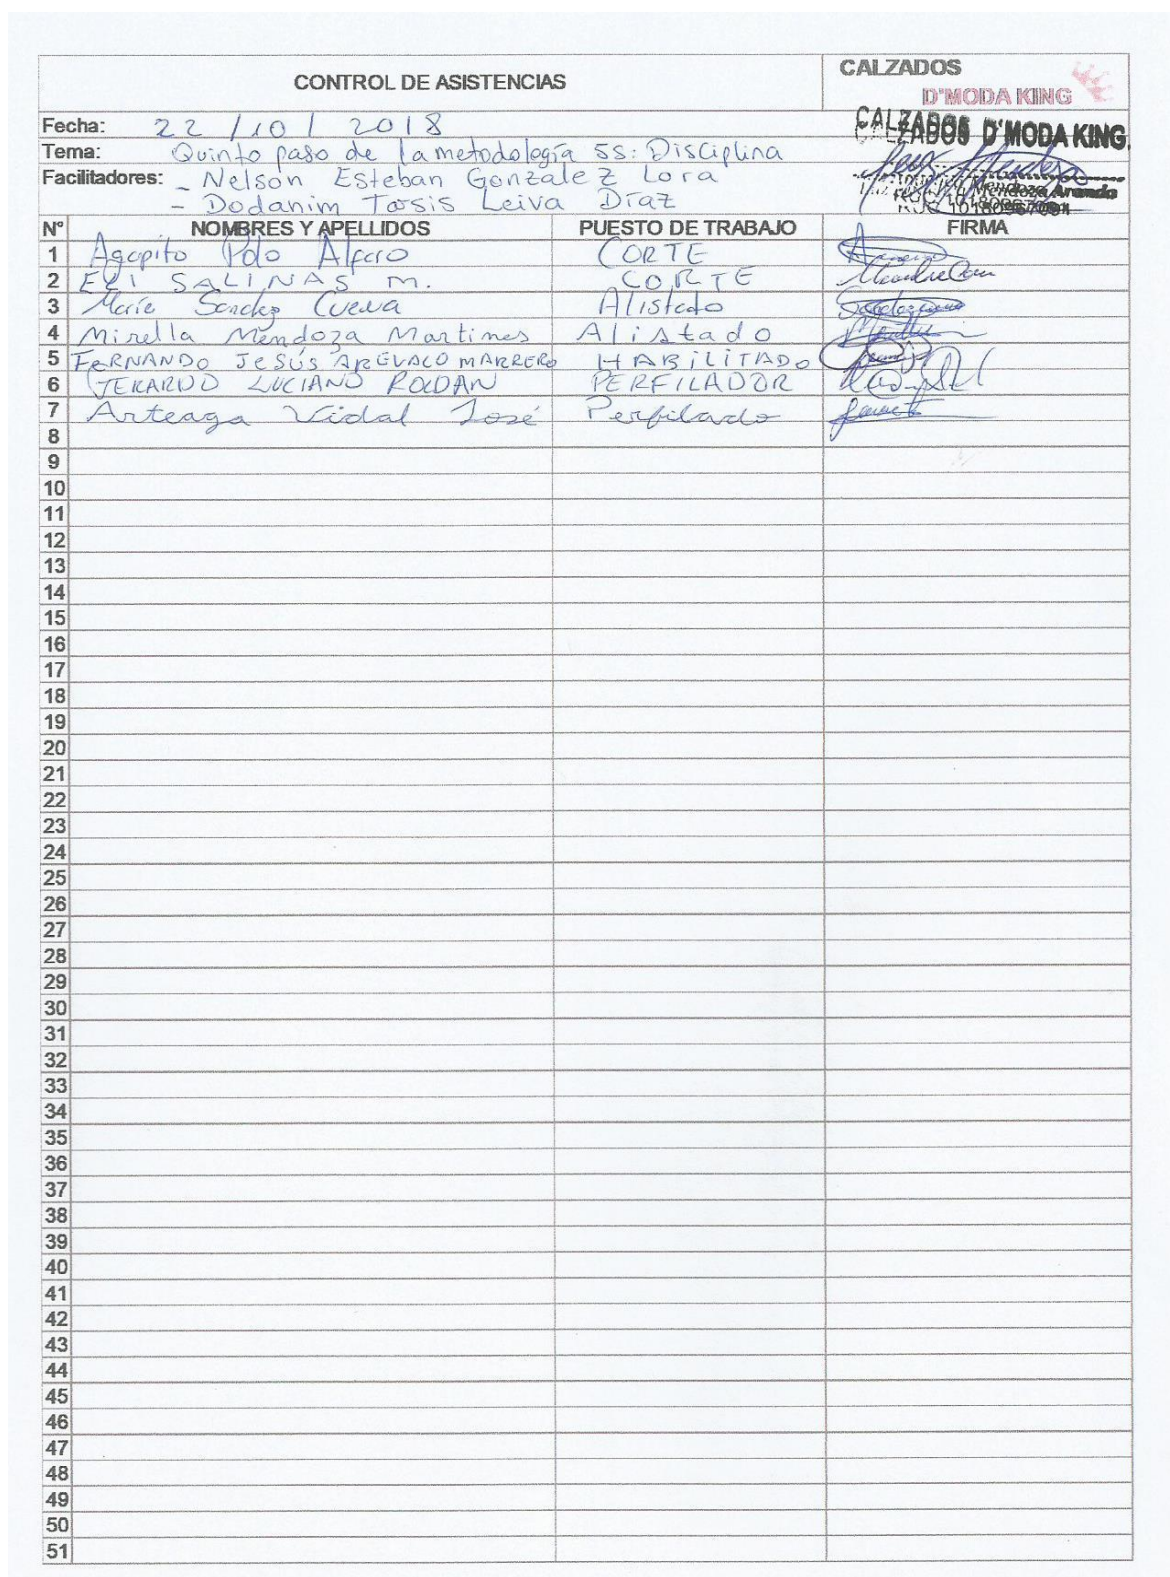 CONTROL DE ASISTENCIAS
CALZADOS
D'MODA KING
Fecha: 22 / 10 / 2018
CALZADOS D'MODA KING.
Tema: Quinto paso de la metodología 5S: Disciplina
Facilitadores: - Nelson Esteban Gonzalez Lora
- Dodanim Tarsis Leiva Díaz
N° NOMBRES Y APELLIDOS PUESTO DE TRABAJO FIRMA
1 Agapito Polo Alfaro CORTE
2 ELI SALINAS M. CORTE
3 María Sanchez Cueva Alistado
4 Mirella Mendoza Martines Alistado
5 FERNANDO JESÚS AREVALO MARRERO HABILITADO
6 JERARDO LUCIANO ROLDAN PERFILADOR
7 Arteaga Vidal José Perfilado
8
9
10
11
12
13
14
15
16
17
18
19
20
21
22
23
24
25
26
27
28
29
30
31
32
33
34
35
36
37
38
39
40
41
42
43
44
45
46
47
48
49
50
51